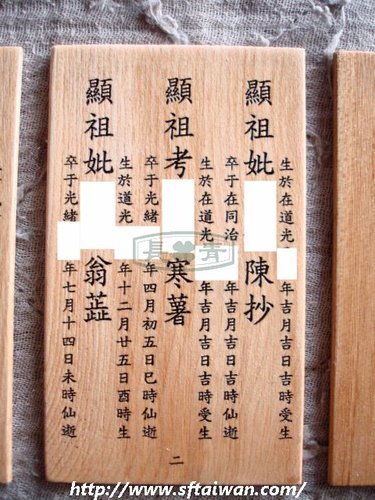 生於在道光 年吉月吉日吉時受生
顯祖妣 陳抄
卒于在同治 年吉月吉日吉時仙逝
生於在道光 年吉月吉日吉時受生
顯祖考 寒薯
卒于光緒 年四月初五日巳時仙逝
生於道光 年十二月廿五日酉時生
顯祖妣 翁
卒于光緒 年七月十四日未時仙逝
二
長青
http://www.sftaiwan.com/